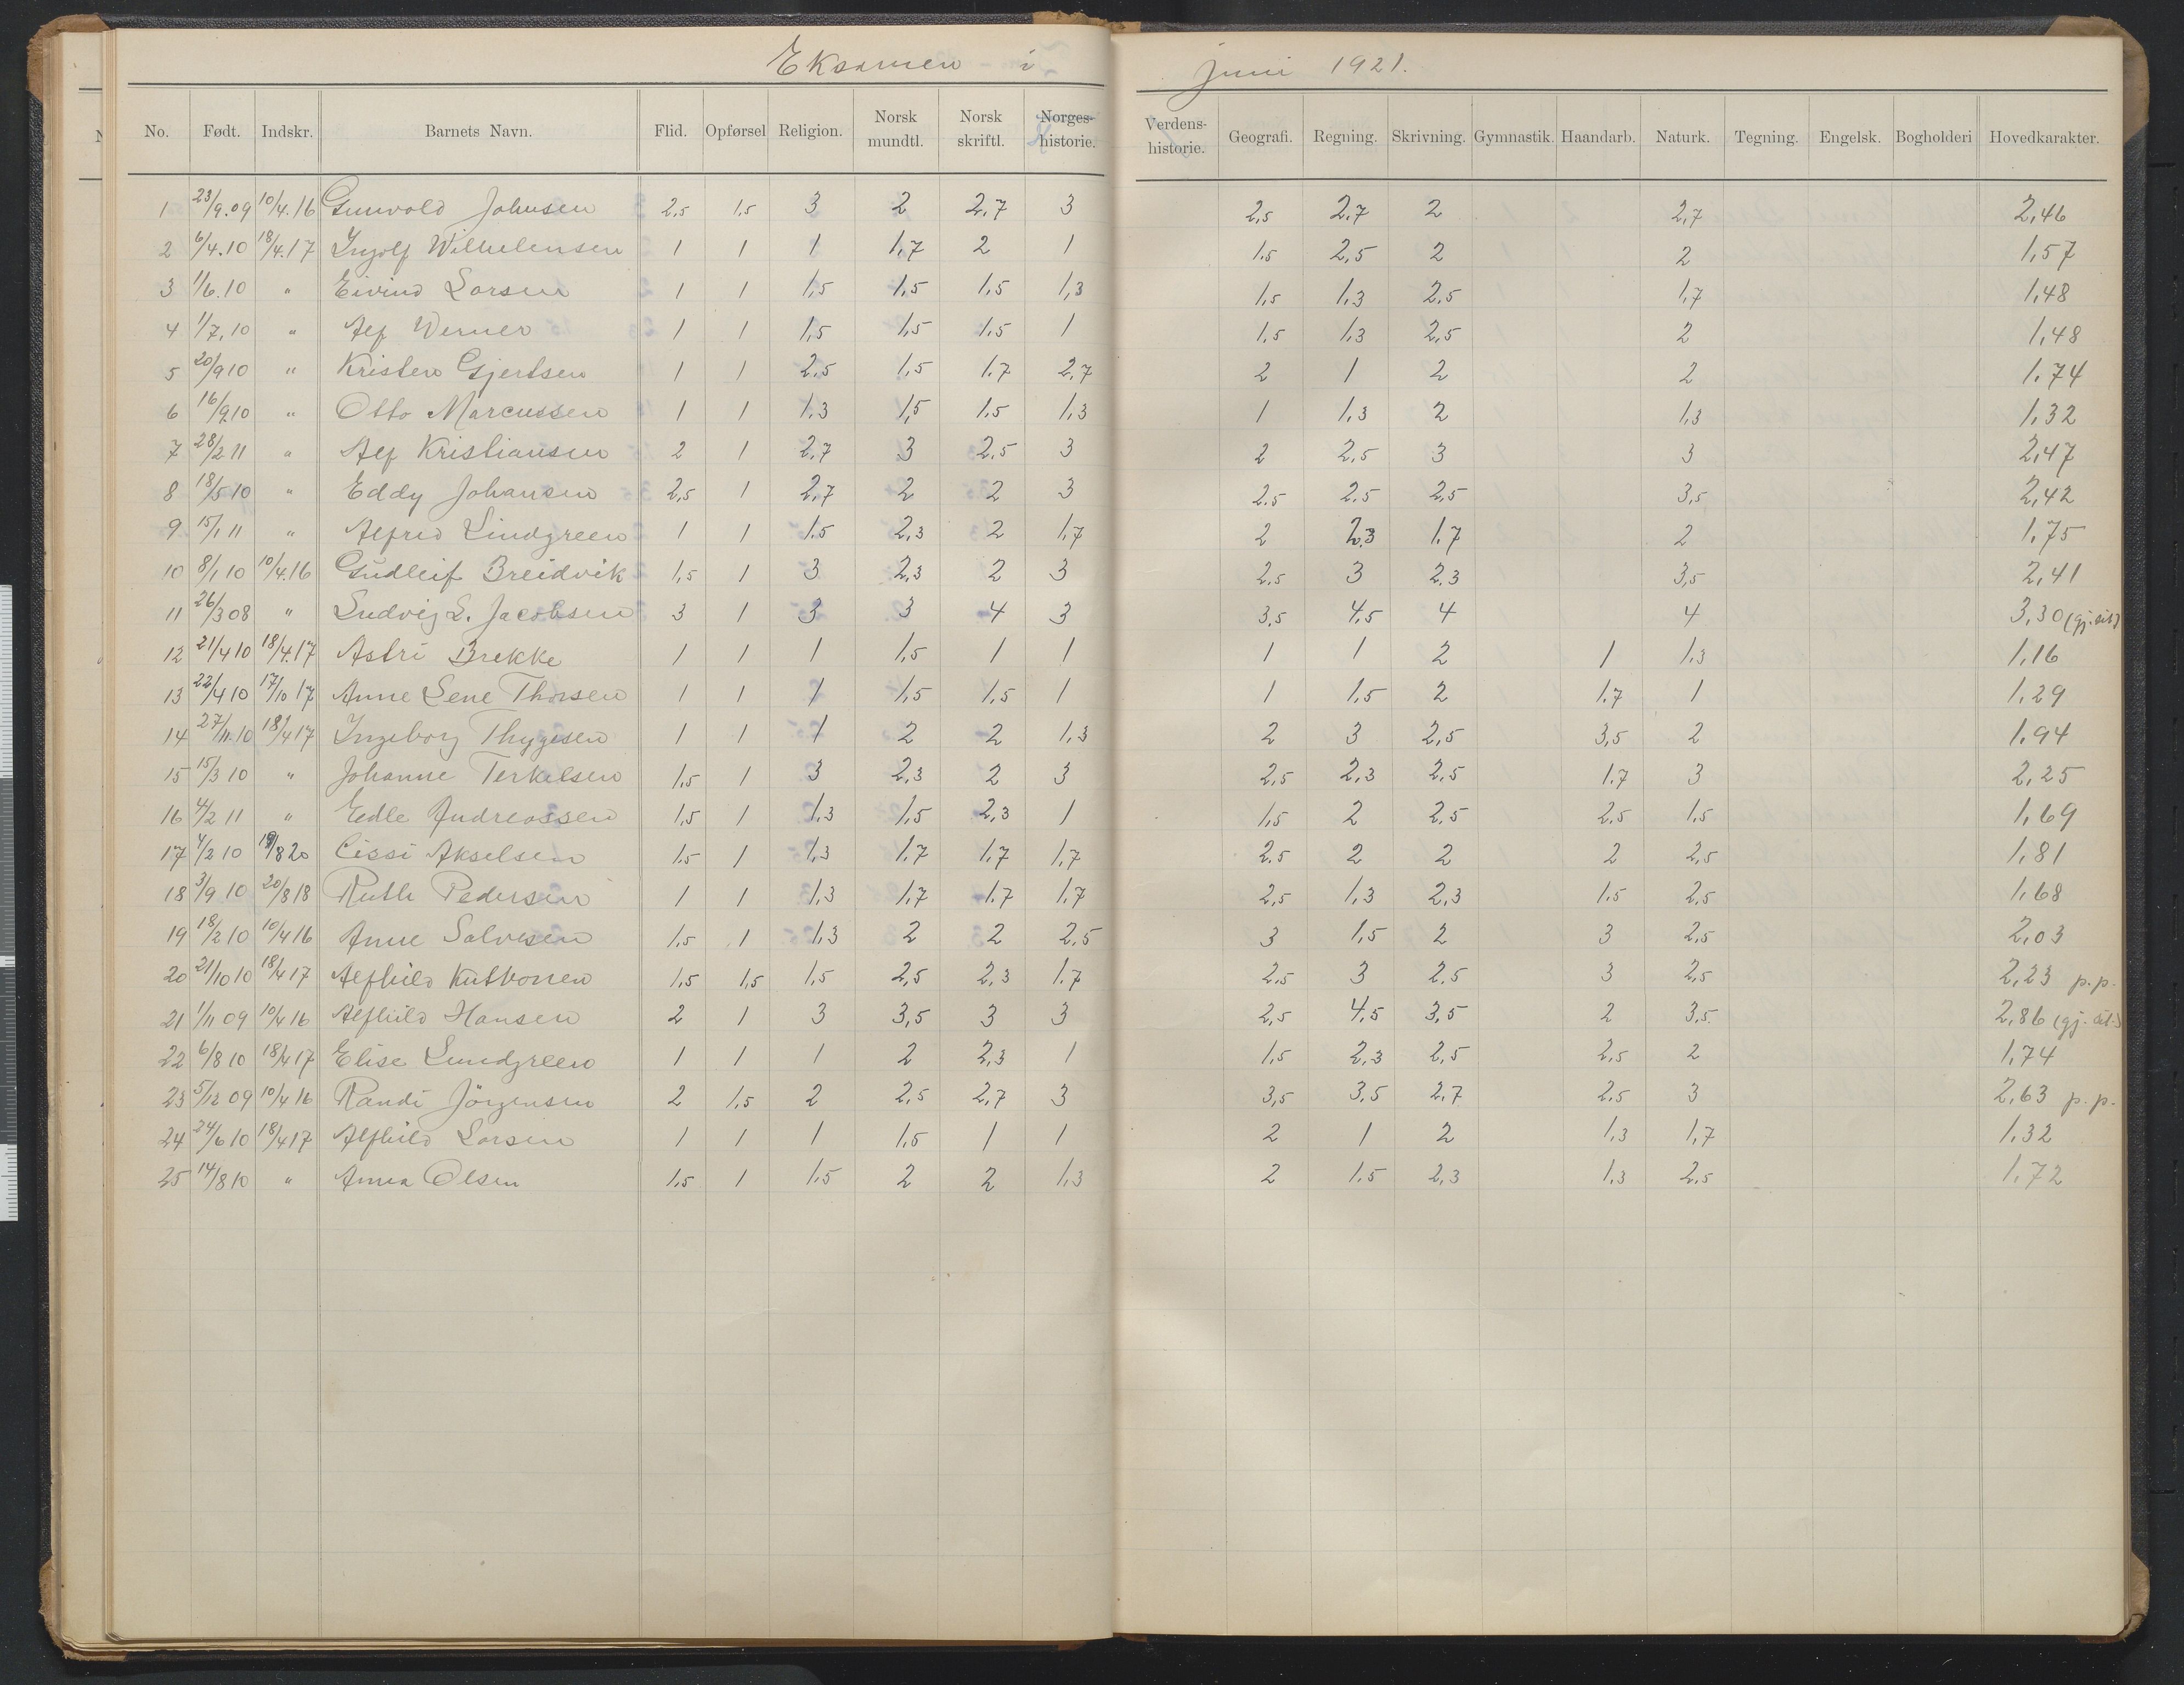 Eksamen i juni 1921.
No. Født. Indskr. Barnets Navn. Flid. Opførsel Religion. Norsk mundtl. Norsk skriftl. Norges-historie. Verdens-historie. Geografi. Regning. Skrivning. Gymnastik. Haandarb. Naturk. Tegning. Engelsk. Bogholderi Hovedkarakter.
1 23/9.09 10/4.16 Gunvald Johnsen 2,5 1,5 3 2 2,7 3 2,5 2,7 2 2,7 2,46
2 6/4.10 18/4.17 Ingolf Wilhelmsen 1 1 1 1,7 2 1 1.5 2,5 2 2 1,57
3 1/6.10 " Eivind Larsen 1 1 1,5 1,5 1,5 1,3 1,5 1,3 2,5 1,7 1,48
4 1/7.10 " Alf Werner 1 1 1,5 1,5 1,5 1 1,5 1,3 2,5 2 1,48
5 20/9 10 " Kristen Gjertsen 1 1 2,5 1,5 1.7 2,7 2 1 2 2 1.74
6 16/9.10 " Otto Marcussen 1 1 1,3 1,5 1.5 1,3 1 1,3 2 1,3 1,32
7 28/2 11 " Alf Kristiansen 2 1 2,7 3 2,5 3 2 2,5 3 3 2,47
8 18/5 10 " Eddy Johansen 2,5 1 2,7 2 2 3 2.5 2.5 2,5 3,5 2,42
9 15/1 11 " Alfred Lindgreen 1 1 1.5 2,3 2 1,7 2 2,3 1.7 2 1,75
10 8/1 10 10/4.16 Gudleif Breidvik 1,5 1 3 2,3 2 3 2,5 3 2,3 3,5 2,41
11 26/3 08 " Ludvig L. Jacobsen 3 1 3 3 4 3 3,5 4,5 4 4 3,30
12 21/4 10 18/4.17 Astri Brekke 1 1 1 1,5 1 1 1 1 2 1 1,3 1,16
13 22/4 10 17/10 17 Anne Lene Thorsen 1 1 1 1,5 1,5 1 1 1,5 2 1.7 1 1,29
14 27/11.10 18/4 17 Ingeborg Thygesen 1 1 1 2 2 1,3 2 3 2,5 3,5 2 1.94
15 15/3 10 " Johanne Terkelsen 1,5 1 3 2,3 2 3 2,5 2,3 2,5 1.7 3 2,25
16 4/2 11 " Edle Andreassen 1,5 1 1,3 1,5 2,3 1 1,5 2 2,5 2,5 1,5 1,69
17 4/2 10 19/8 20 Cissi Akselsen 1.5 1 1,3 1.7 1,7 1,7 2.5 2 2 2 2,5 1,81
18 3/9 10 20/8 18 Ruth Pedersen 1 1 1,3 1,7 1.7 1,7 2,5 1,3 2,3 1.5 2,5 1,68
19 18/2 10 10/4 16 Anne Salvesen 1,5 1 1,3 2 2 2,5 3 1,5 2 3 2,5 2,03
20 21/10 10 18/4 17 Alfhild 1,5 1,5 1,5 2,5 2,3 1.7 2,5 3 2,5 3 2,5 2,23 p.p.
21 1/11 09 10/4 16 Alfhild Hansen 2 1 3 3,5 3 3 2,5 4,5 3,5 2 3,5 2,86
22 6/8 10 18/4 17 Elise Lundgreen 1 1 1 2 2,3 1 1,5 2,3 2,5 2,5 2 1,74
23 5/12 09 10/4 16 Randi Jörgensen 2 1,5 2 2,5 2,7 3 3,5 3,5 2,7 2,5 3 2,63 p.p.
24 24/6 10 18/4 17 Alfhild Larsen 1 1 1 1,5 1 1 2 1 2 1,3 1,7 1,32
25 14/8 10 " Anna Olsen 1,5 1 1,5 2 2 1,3 2 1.5 2,3 1,3 2,5 1,72